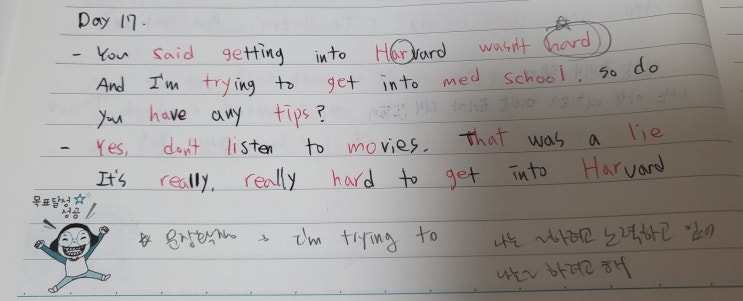 Day 17.
- You said getting into Harvard wasn't hard
And I'm trying to get into med school, so do
you have any tips?
- Yes, don't listen to movies. That was a lie
It's really, really hard to get into Harvard
목표달성 ☆
성공
→ I'm trying to 나는 ~하려고 노력하고 있어
나는 ~ 하려고 해